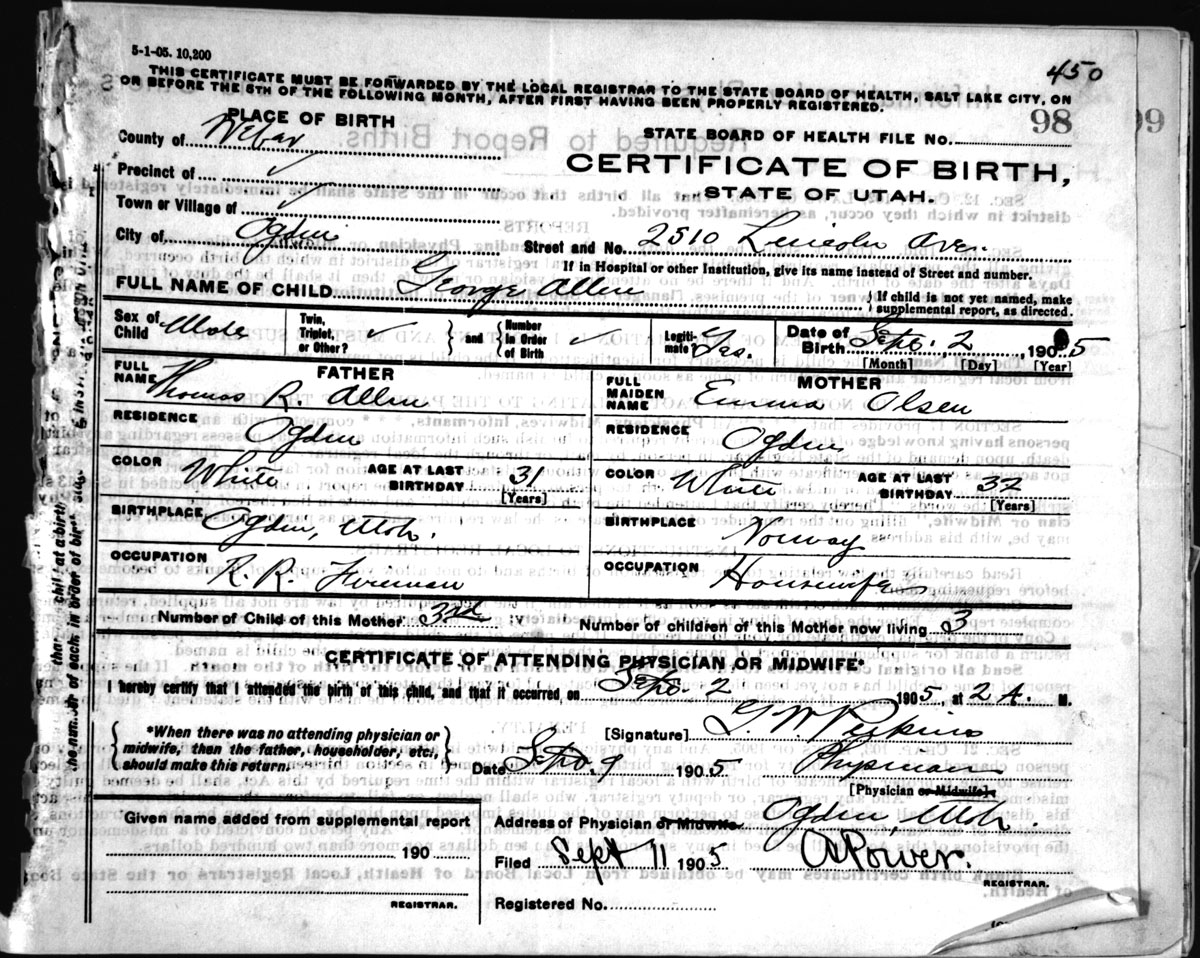 5-1-05. 10,200
450
THIS CERTIFICATE MUST BE FORWARDED BY THE LOCAL REGISTRAR TO THE STATE BOARD OF HEALTH, SALT LAKE CITY, ON
OR BEFORE THE 5TH OF THE FOLLOWING MONTH, AFTER FIRST HAVING BEEN PROPERLY REGISTERED.
98
99
PLACE OF BIRTH
STATE BOARD OF HEALTH FILE NO.
County of Weber
CERTIFICATE OF BIRTH,
Precinct of ✓
STATE OF UTAH.
Town or Village of ✓
City of Ogden Street and No. 2510 Lincoln Ave.
If in Hospital or other Institution, give its name instead of Street and number.
FULL NAME OF CHILD George Allen { If child is not yet named, make
supplemental report, as directed.
Sex of Child Male Twin, Triplet, or Other? ✓ } and { Number in Order of Birth ✓ Legitimate? Yes. Date of Birth Sept. 2, 1905
[Month] [Day] [Year]
FATHER MOTHER
FULL NAME Thomas R. Allen FULL MAIDEN NAME Emma Olsen
RESIDENCE Ogden RESIDENCE Ogden
COLOR White AGE AT LAST BIRTHDAY 31 [Years] COLOR White AGE AT LAST BIRTHDAY 32 [Years]
BIRTHPLACE Ogden, Utah. BIRTHPLACE Norway
OCCUPATION R. R. Fireman OCCUPATION Housewife
Number of Child of this Mother 3rd Number of children of this Mother now living 3
CERTIFICATE OF ATTENDING PHYSICIAN OR MIDWIFE*
I hereby certify that I attended the birth of this child, and that it occurred on Sept. 2 1905, at 2 A. M.
{ *When there was no attending physician or
midwife, then the father, householder, etc.,
should make this return. }
[Signature] G. W. Perkins
Date Sept. 9 1905 Physician
[Physician or Midwife]
Given name added from supplemental report
190
REGISTRAR.
Address of Physician or Midwife Ogden, Utah.
Filed Sept 11 1905 A Power.
REGISTRAR.
Registered No.